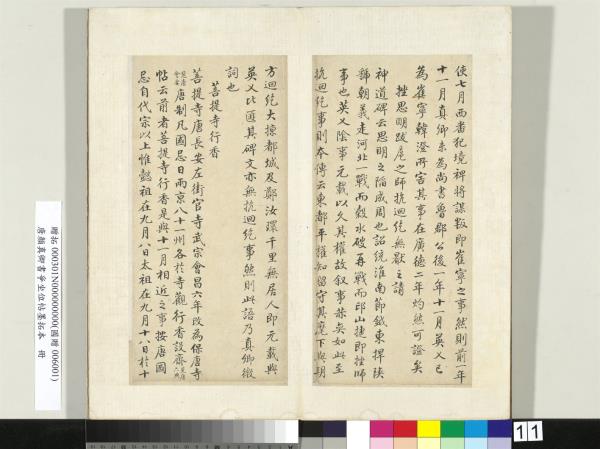 使七月西番犯境裨將謀叛即崔寧之事然則前一年
十一月真卿未為尚書魯郡公後一年十一月英乂已
為崔寧韓澄所害其事在廣德二年灼然可證矣
挫思明跋扈之師抗迴紇無猒之請
神道碑云思明之陷成周也詔統淮南節鉞東捍陝
虢朝義走河北一戰而穀水破再戰而邙山捷即挫師
事也英乂陰事元載以久其權故叙事林矣如此至
抗迴紇事則本傳云東都平權知留守其麾下與朔
方迴紇大掠都城及鄭汝環千里無居人即元載與
英乂比匿其碑文亦無抗迴紇事然則此語乃真卿微
詞也
菩提寺行香
菩提寺唐長安左街官寺武宗會昌六年改為保唐寺
見唐會要 唐制凡國忌日兩京八十一州各於寺觀行香設齋 見唐六典
帖云前者菩提寺行香是與十一月相近之事按唐國
忌自代宗以上惟懿祖在九月八日太祖在九月十八日於十
贈拓 000301N000000000(國贈 006001)
唐顏真卿書爭坐位帖墨拓本 冊
11